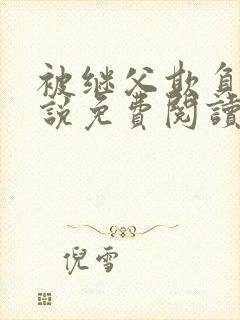 被继父欺負
説免費閱讀
倪雪